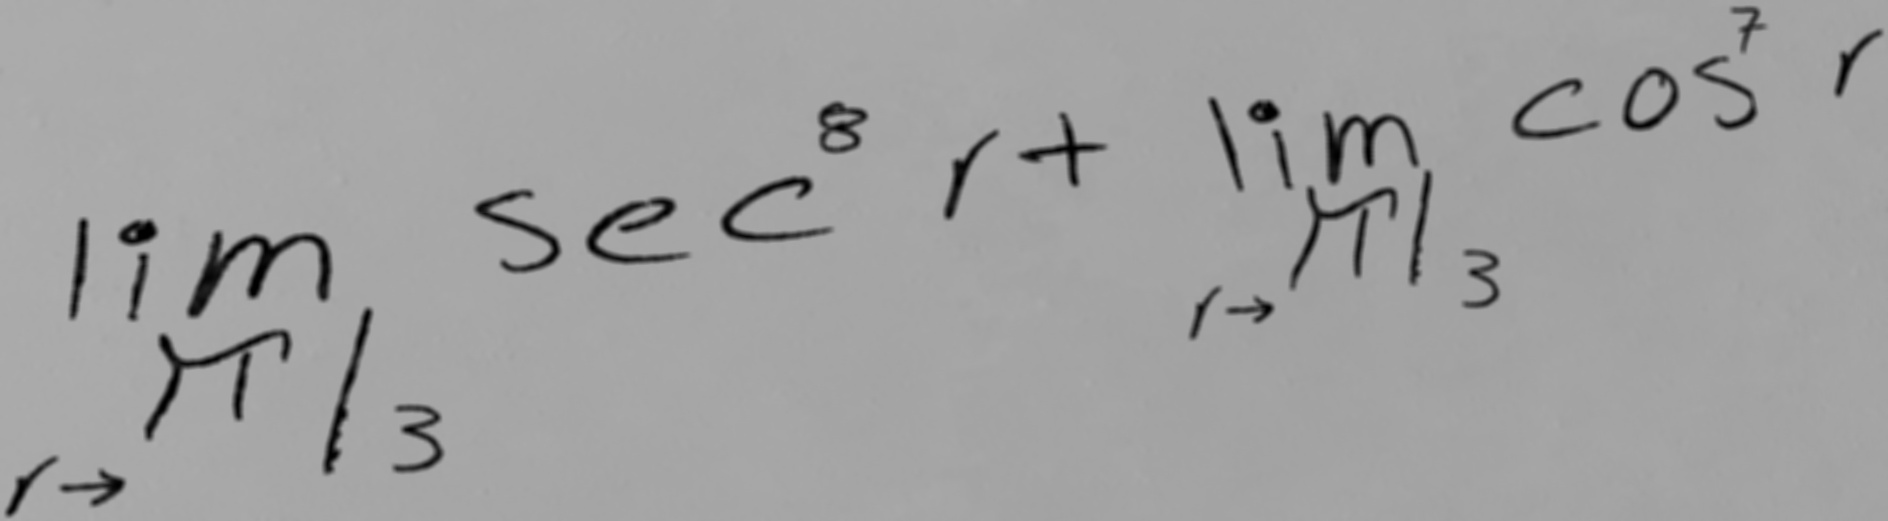 lim r→π/3 sec^8 r + lim r→π/3 cos^7 r